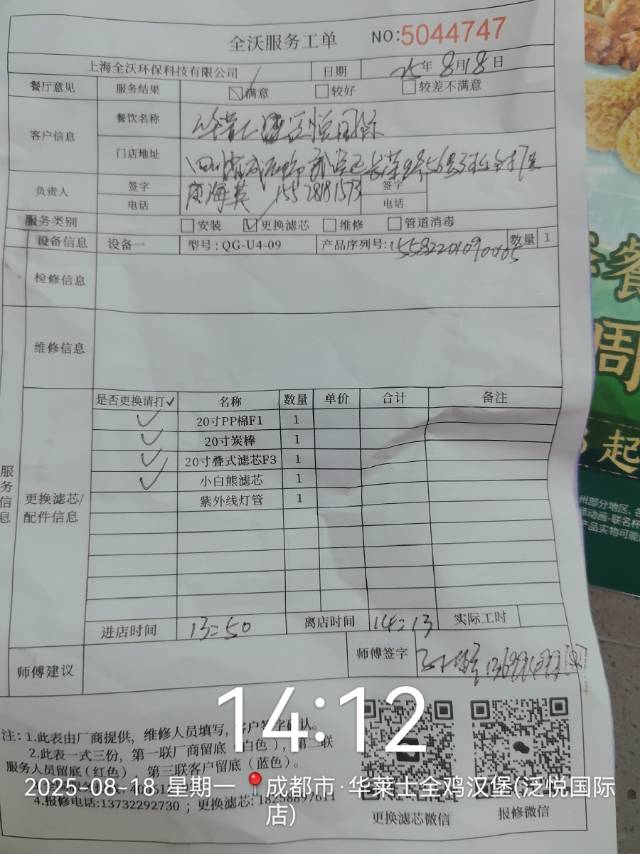 全沃服务工单 NO:5044747
上海全沃环保科技有限公司 日期 25年8月18日
餐厅意见 服务结果 满意 较好 较差不满意
客户信息 餐饮名称 华莱士
门店地址 四川省成都市
负责人 签字 签字
电话 电话
服务类别 安装 ✓更换滤芯 维修 管道消毒
设备信息 设备一 型号:QG-U4-09 产品序列号: 数量 1
检修信息
维修信息
服务信息
更换滤芯/配件信息
是否更换请打✓ 名称 数量 单价 合计 备注
✓ 20寸PP棉F1 1
✓ 20寸炭棒 1
✓ 20寸叠式滤芯F3 1
✓ 小白熊滤芯 1
紫外线灯管 1
进店时间 13:50 离店时间 14:13 实际工时
师傅建议 师傅签字
注:1.此表由厂商提供,维修人员填写,客户签字确认。
2.此表一式三份,第一联厂商留底(白色),第二联
服务人员留底(红色) 第三联客户留底(蓝色)。
4.报修电话:13732292730;更换滤芯:
更换滤芯微信 报修微信
14:12
2025-08-18 星期一 成都市·华莱士全鸡汉堡(泛悦国际
店)
周
起